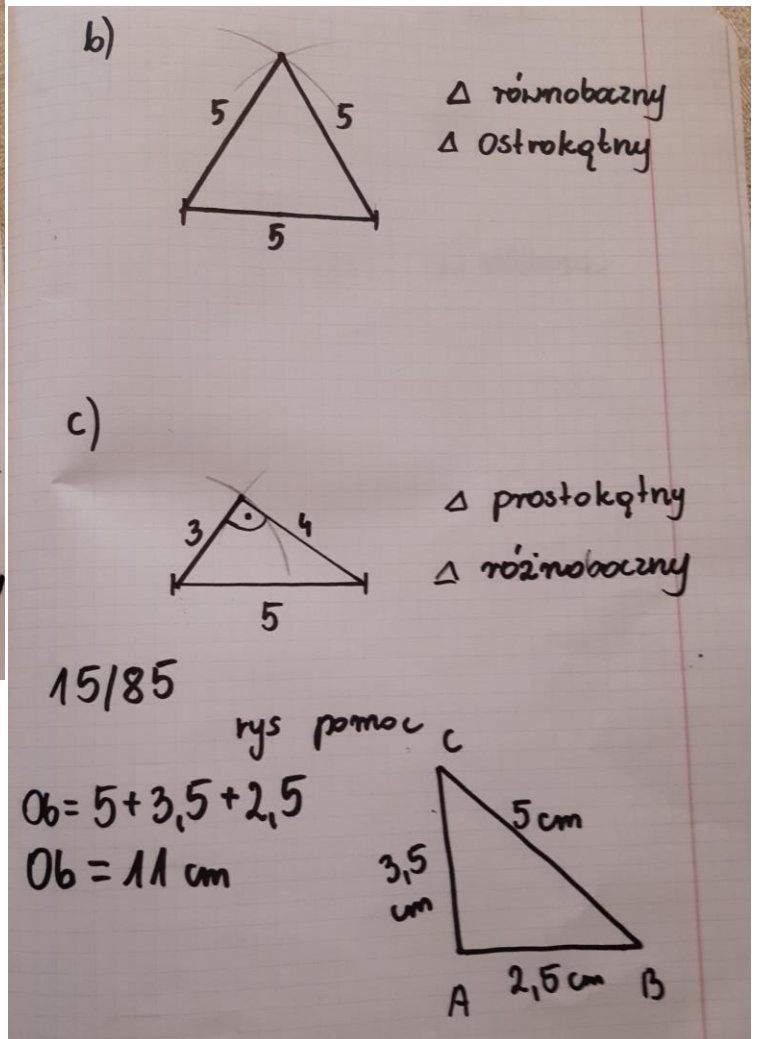 b)
5
5
5
Δ równoboczny
Δ ostrokątny
c)
3
4
5
Δ prostokątny
Δ różnoboczny
15/85
rys pomoc
Ob = 5 + 3,5 + 2,5
Ob = 11 cm
C
5 cm
3,5
cm
A
2,5 cm
B